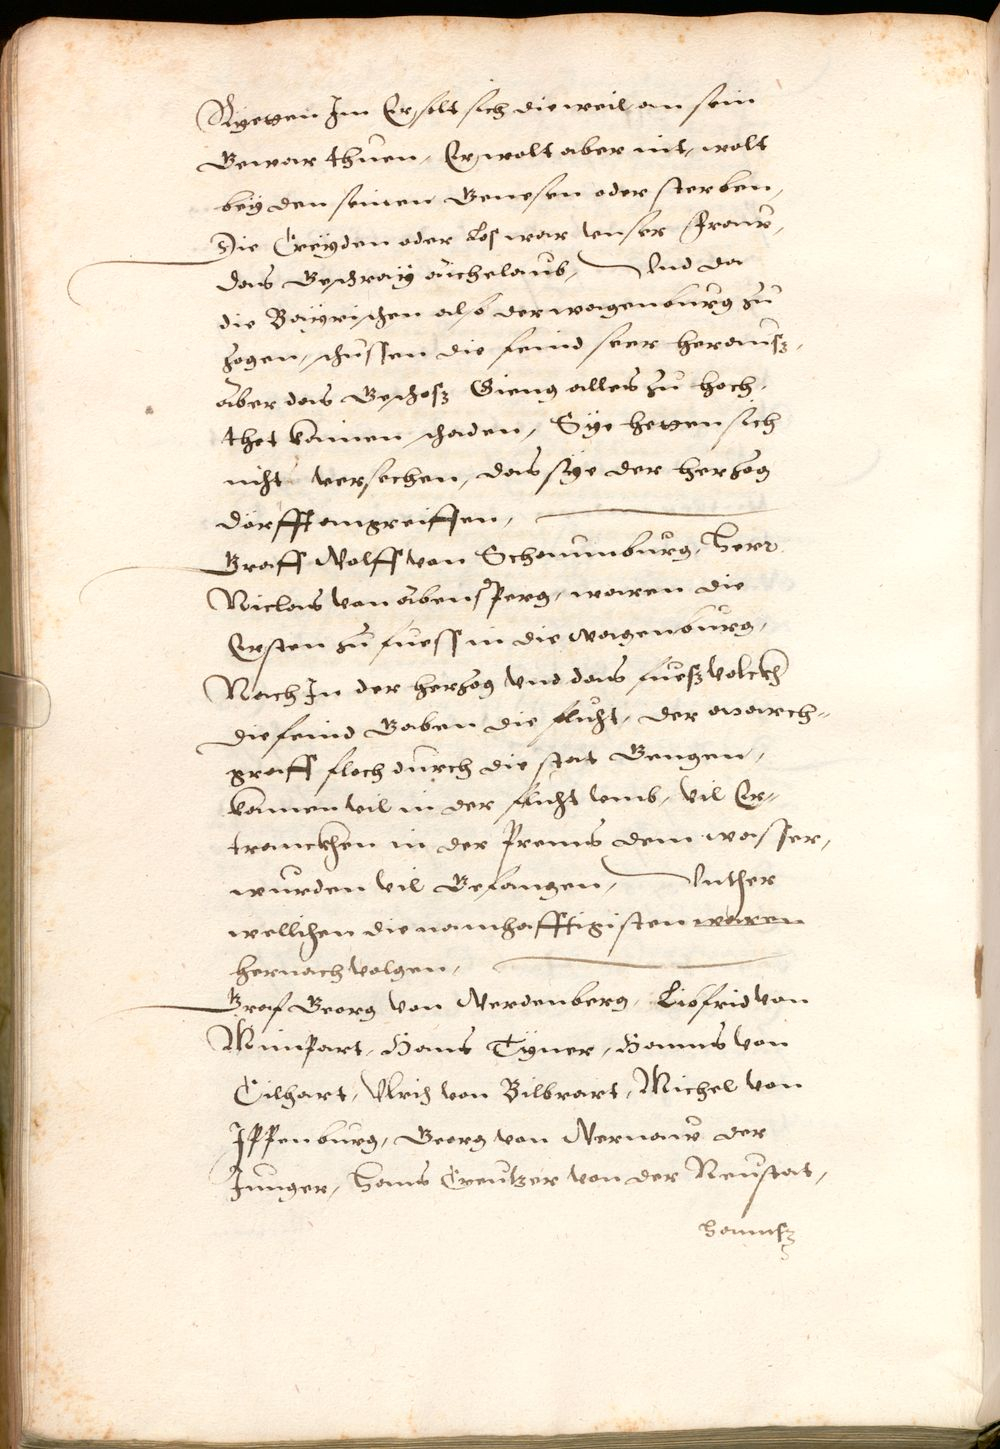 Ryetten Im Er solt sich dieweil an sein
Gewar thuen, Er wolt aber nit, wolt
bey den seinen Genesen oder sterben,
Die Creyden oder Los war unser Fraur,
das Geschray aichelaub, Und da
die Bayrischen also der wagenburg zu
zogen, schussen die feind seer herausz,
aber das Geschosz Gieng alles zu hoch,
thet kainen schaden, Sye hetten sich
nicht versechen, das sye der herzog
dörfft angreiffen,
Graff Wolff von Schaumburg, Herr
Niclas von Abensperg, waren die
Ersten zu fuess in die wagenburg,
Nach In der herzog und das fueszvolckh
die feind Gaben die flucht, der march-
graff floch durch die stat Gengen,
kamen vil in der flucht umb, vil Er-
tranckhen in der Prenns dem wasser,
wurden vil Gefangen, Unther
wellichen die namhafftigisten waren
hernach volgen,
Graf Georg von Werdenberg, Liofrid von
Wimpart, Hans Tyner, Hanns von
Eilhart, Ulrich von Bilbrart, Michel von
Ippenburg, Georg von Wernaw der
Junger, Hans Creutzer von der Neustat,
Hannsz